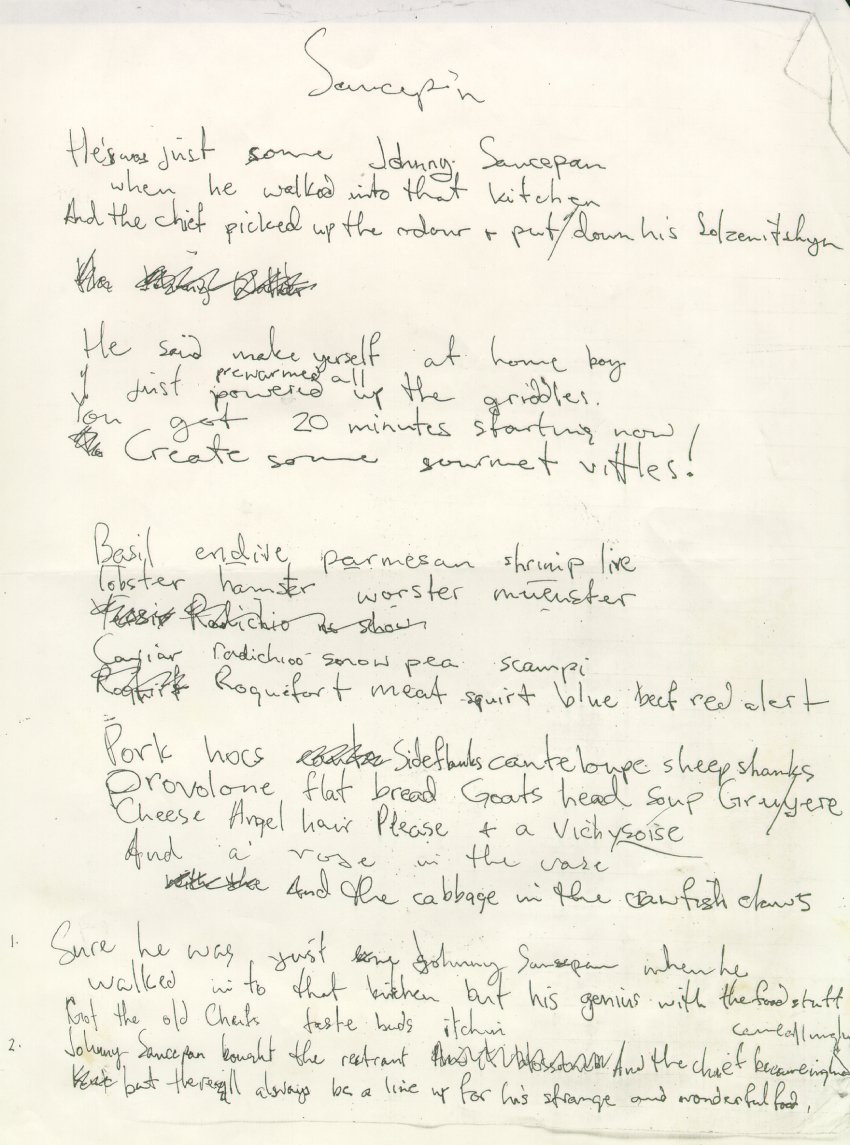 Saucepin
He's was just some Johnny Saucepan
when he walked into that kitchen
And the chief picked up the odour + put down his Solzenitshyn
He said make yerself at home boy
prewarmed all
I just powered up the griddles.
You got 20 minutes starting now
Create some gourmet vittles!
Basil endive parmesan shrimp live
lobster hamster worster muenster
Radichio is show
Caviar radichio snow pea scampi
Roquefort meat squirt blue beef red alert
Pork hocs Sideflanks canteloupe sheep shanks
Provolone flat bread Goats head soup Gruyere
Cheese Angel hair Please + a Vichysoise
And a rose in the vase
And the cabbage in the crawfish claws
1. Sure he was just Johnny Saucepan when he
walked in to that kitchen but his genius with the food stuff
Got the old Chiefs taste buds itchin
2. Johnny Saucepan bought the restrant And the chief became
but there'll always be a line up for his strange and wonderful food.